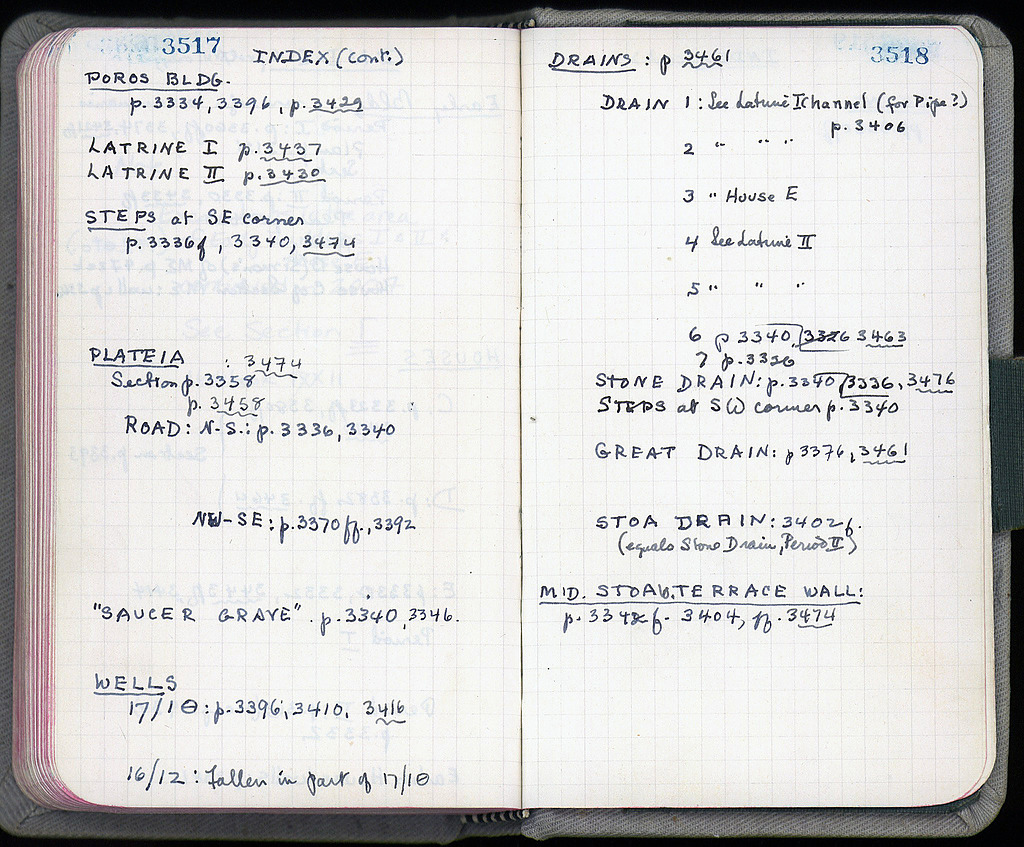 3517
INDEX (Cont.)
POROS BLDG.
p. 3334, 3396, p. 3429
LATRINE I p. 3437
LATRINE II p. 3430
STEPS at SE corner
p. 3336f, 3340, 3474
PLATEIA : 3474
Section p. 3358
p. 3458
ROAD: N-S.: p. 3336, 3340
NW-SE: p. 3370 ff., 3392
"SAUCER GRAVE". p. 3340, 3346.
WELLS
17/1 Θ: p. 3396, 3410, 3416
16/12: Fallen in part of 17/1Θ
3518
DRAINS: p 3461
DRAIN 1: See Latrine I Channel (for Pipe?)
p. 3406
2 " " "
3 " House E
4 See Latrine II
5 " " "
6 p 3340, 3326 3463
7 p. 3326
STONE DRAIN: p. 3340, 3336, 3476
STEPS at SW corner p. 3340
GREAT DRAIN: p 3376, 3461
STOA DRAIN: 3402f.
(equals Stone Drain, Period II)
MID. STOA TERRACE WALL:
p. 3342 f. 3404, ff. 3474